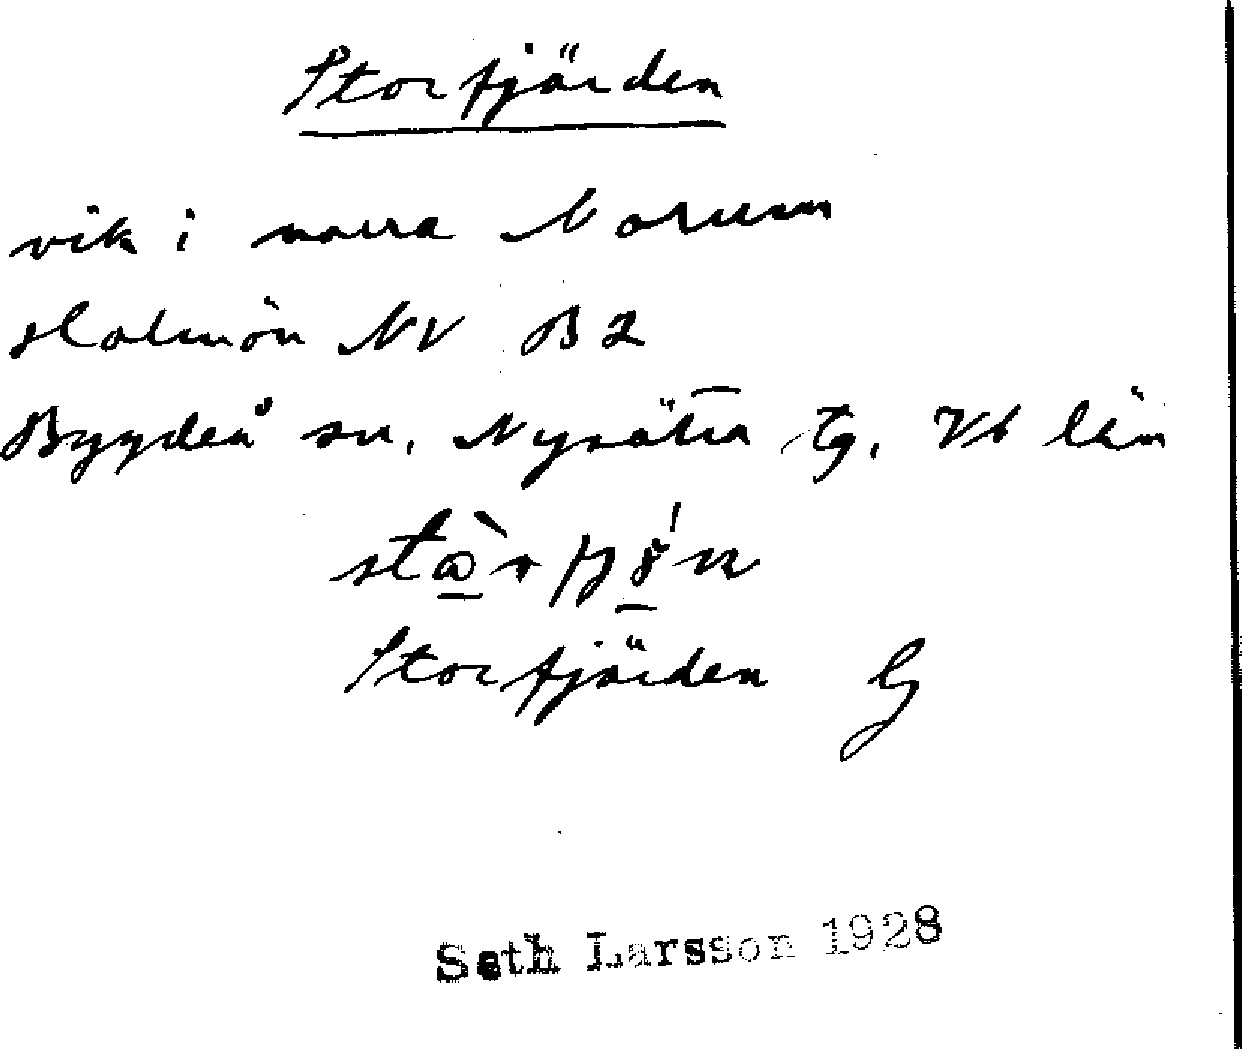 Storfjärden
vik i norra Norum
Holmön NV B2
Bygdeå sn, Nysätra tg, Vb län
Storfjärden G
Seth Larsson 1928